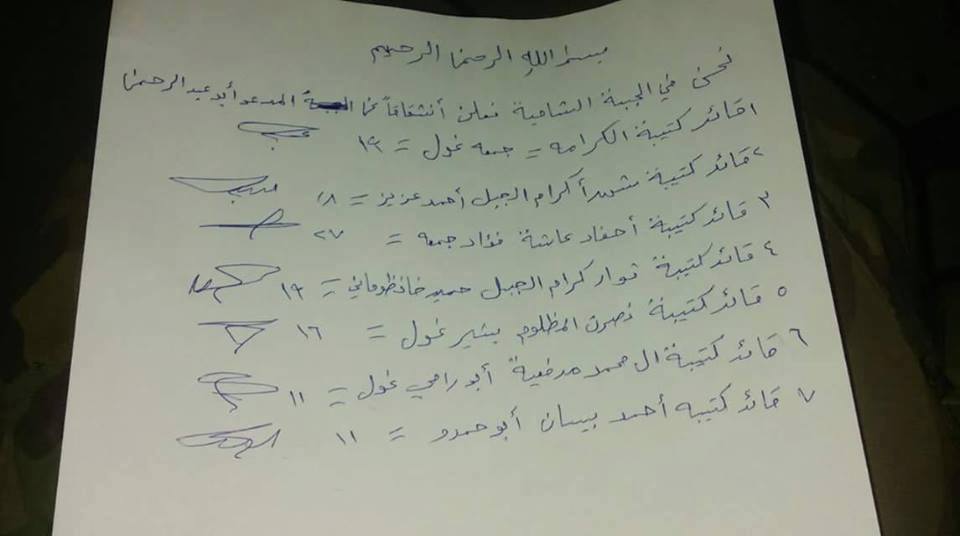 بسم الله الرحمن الرحيم
نحن في الجبهة الشامية نعلن أنشقاقنا عن المدعو أبو عبد الرحمن
١ قائد كتيبة الكرامه = جمعه غول = ١٩
٢ قائد كتيبة شهدأ كرام الجبل أحمد عزيز = ١٨
٣ قائد كتيبة أحفاد عائشة فؤاد جمعه = ٢٧
٤ قائد كتيبة ثوار كرام الجبل حميد = ١٩
٥ قائد كتيبة نصرت المظلوم بشير غول = ١٦
٦ قائد كتيبة ال محمد مرضية أبو رامي غول = ١١
٧ قائد كتيبه أحمد بيسان أبو حمدو = ١١